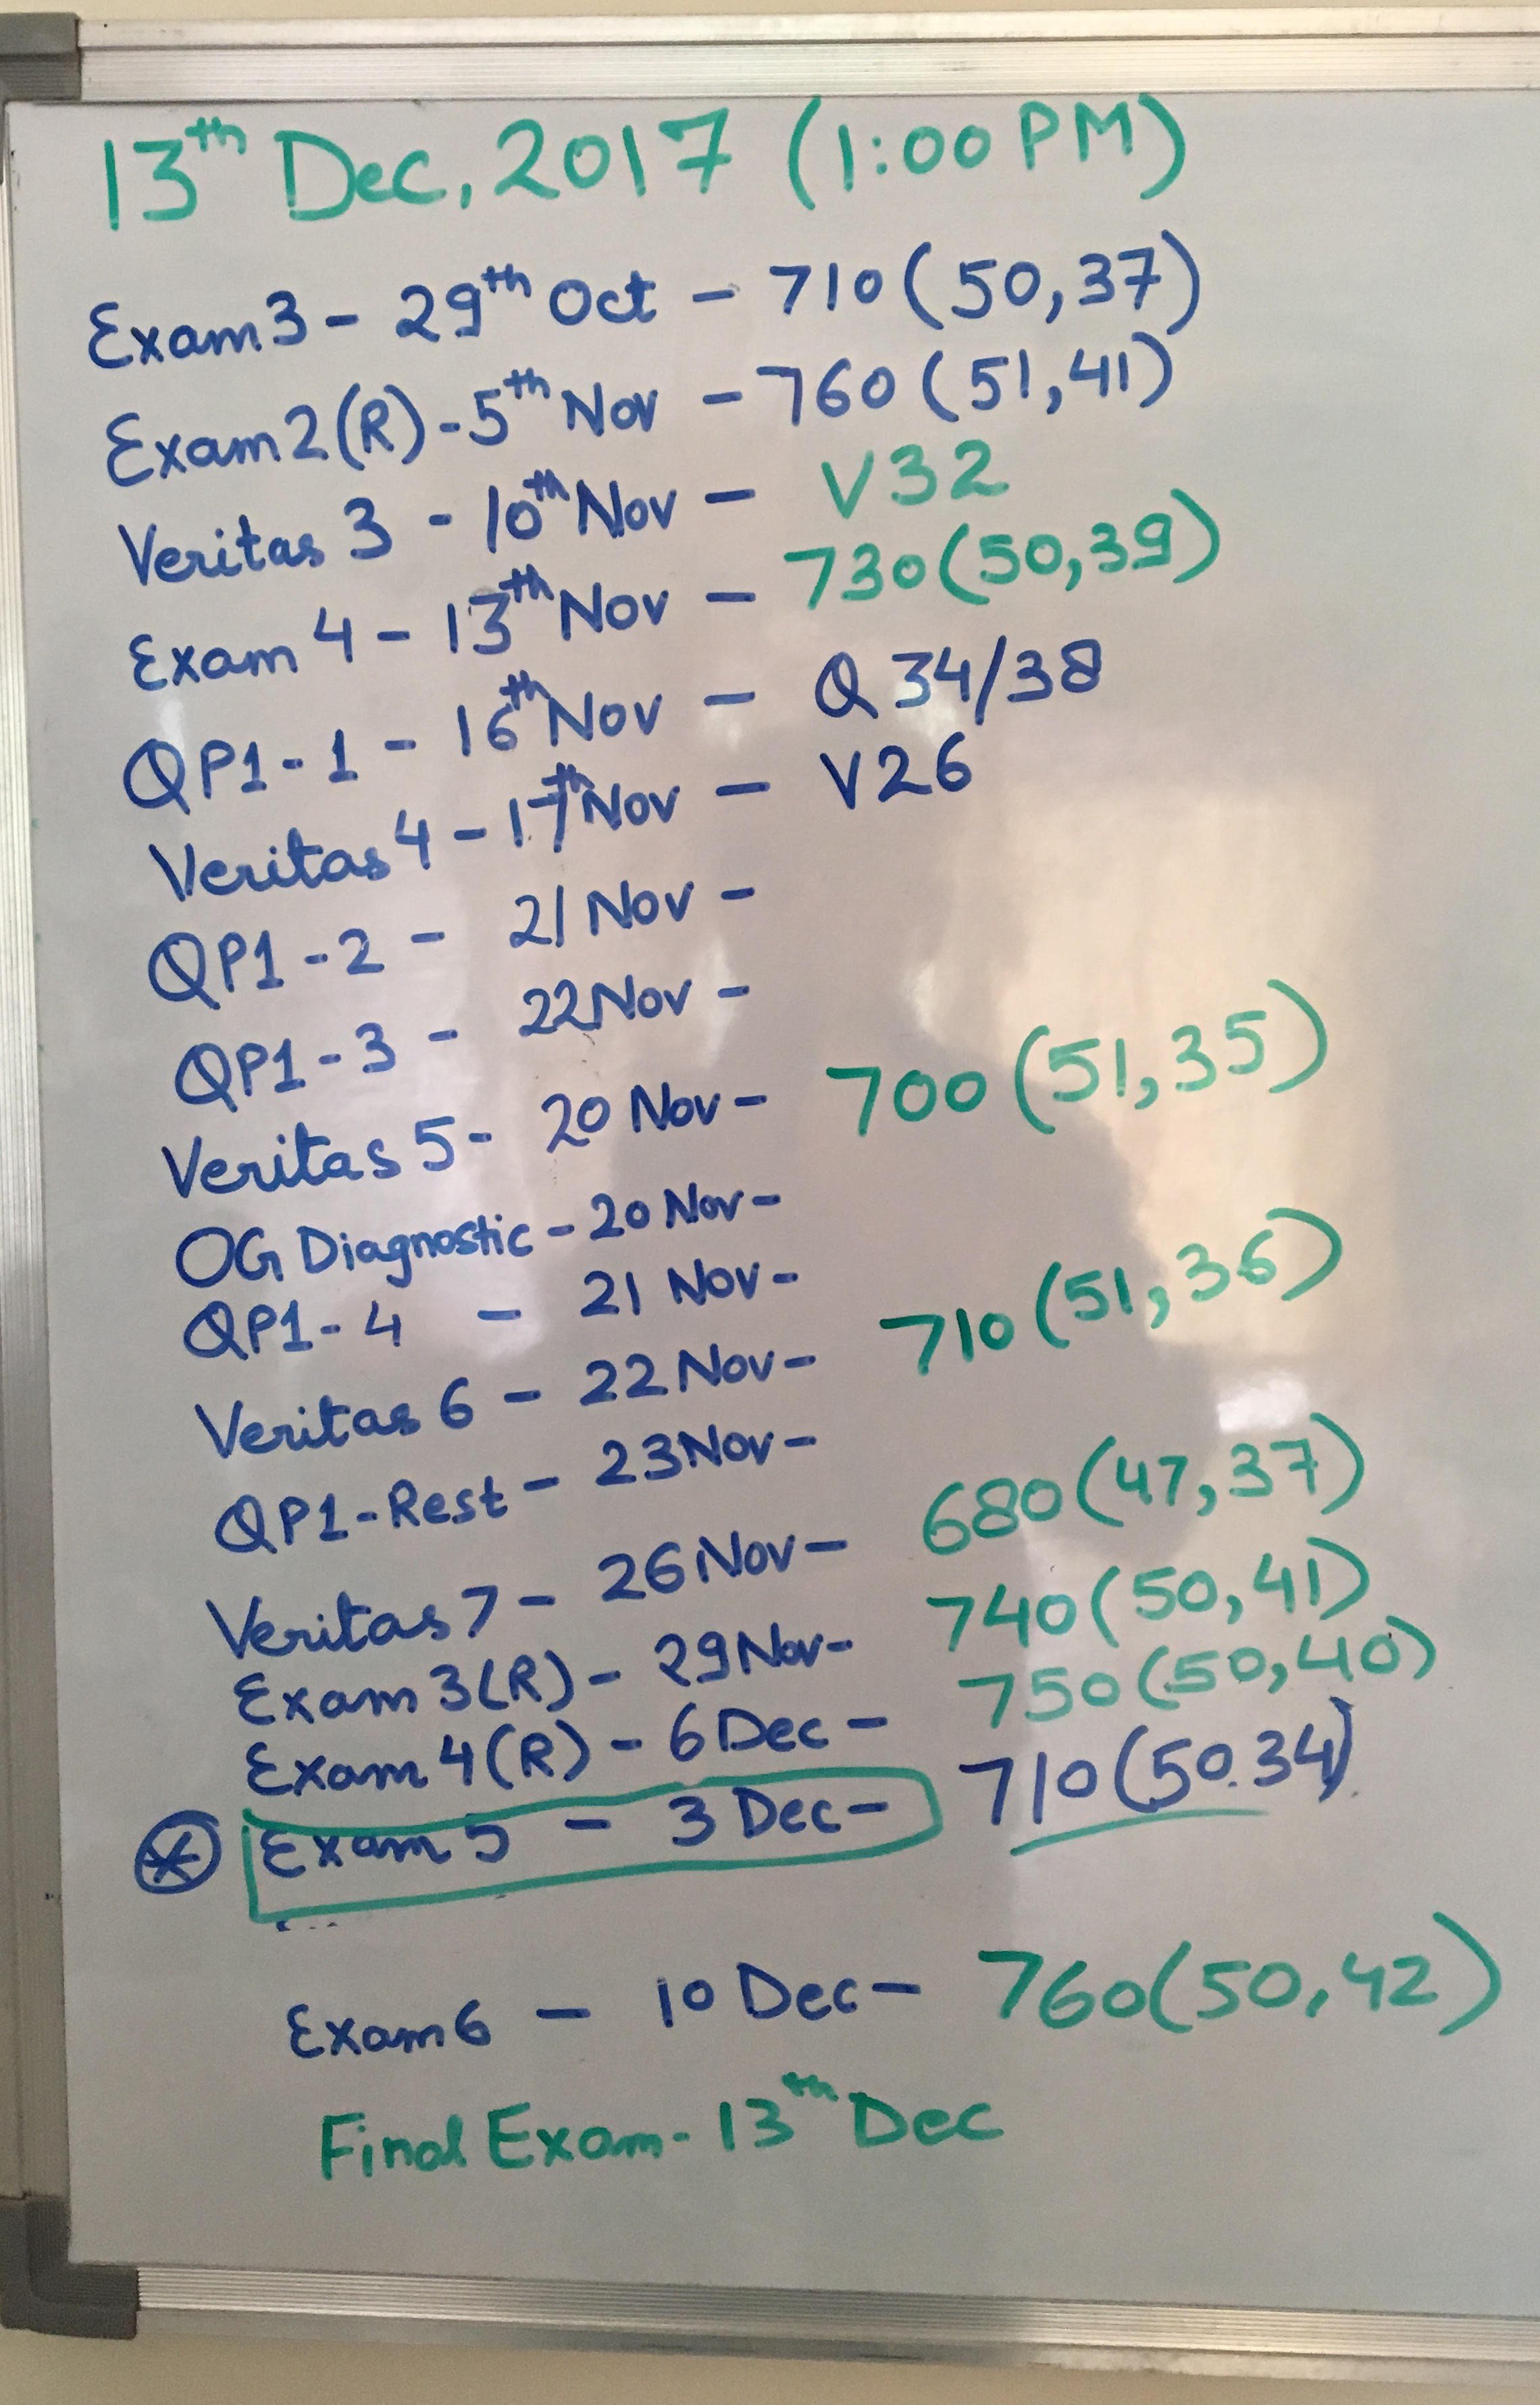 13th Dec, 2017 (1:00 PM)
Exam 3 - 29th Oct - 710 (50,37)
Exam 2 (R) - 5th Nov - 760 (51,41)
Veritas 3 - 10th Nov - V32
Exam 4 - 13th Nov - 730 (50,39)
QP1-1 - 16th Nov - Q 34/38
Veritas 4 - 17th Nov - V26
QP1-2 - 21 Nov -
QP1-3 - 22 Nov -
Veritas 5 - 20 Nov - 700 (51,35)
OG Diagnostic - 20 Nov -
QP1-4 - 21 Nov -
Veritas 6 - 22 Nov - 710 (51,36)
QP1-Rest - 23 Nov -
Veritas 7 - 26 Nov - 680 (47,37)
Exam 3 (R) - 29 Nov - 740 (50,41)
Exam 4 (R) - 6 Dec - 750 (50,40)
Exam 5 - 3 Dec - 710 (50.34)
Exam 6 - 10 Dec - 760 (50,42)
Final Exam - 13th Dec